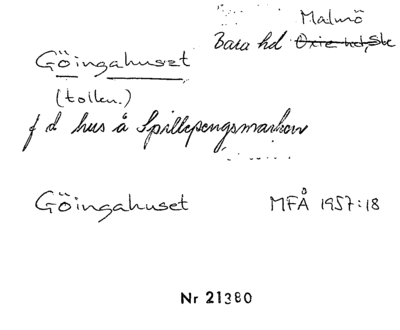 Malmö
Göingahuset Bara hd Oxie hd, Ske
(tolkn.)
f d hus å Spillepengsmarken
Göingahuset MFÅ 1957:18
Nr 21380